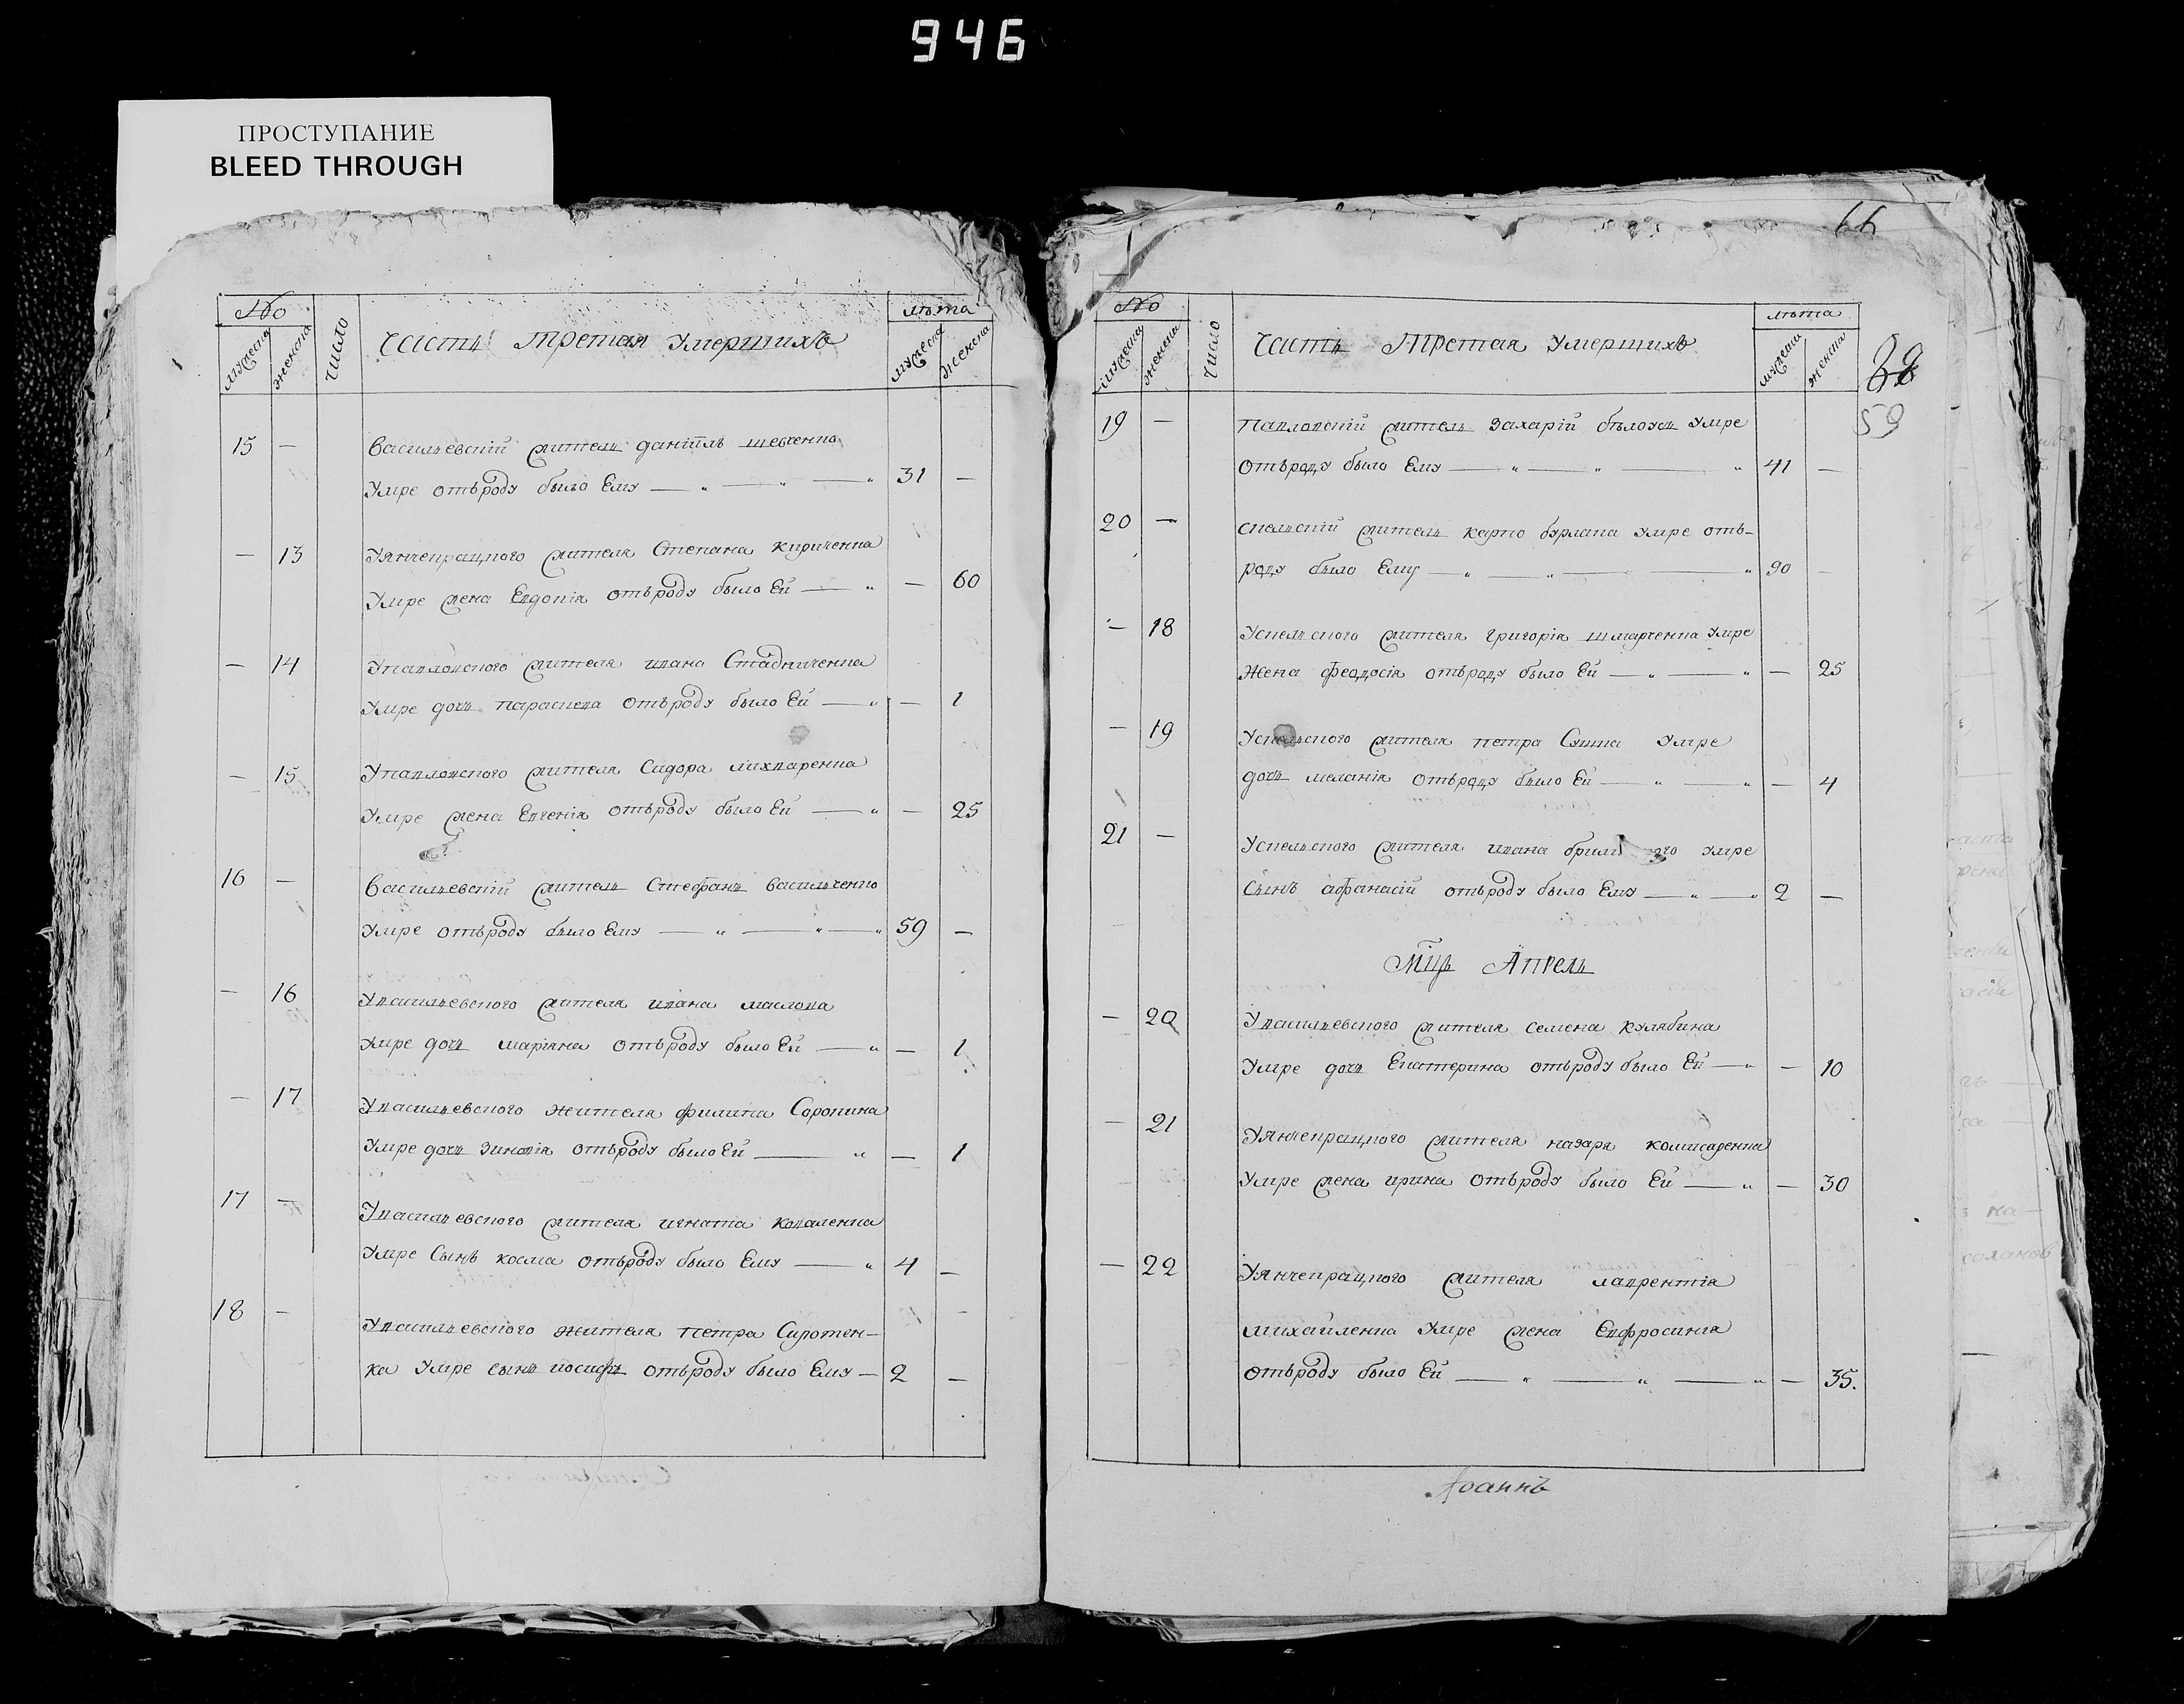 946
ПРОСТУПАНИЕ
BLEED THROUGH
№ число Часть Третая Умершихъ лѣта
мужеска женска мужеска женска
15 — Васильевскій житель даніилъ шевченко
Умре отъроду было Ему — „ — „ — „ 31 —
— 13 Уянчеврацкого жителя Степана Кириченка
Умре жена Евдокія отъроду было Ей — „ — 60
— 14 Упавловского жителя ивана Стадниченка
Умре дочь параскева отъроду было Ей — „ — 1
— 15 Упавловского жителя Сидора
Умре жена Евгенія отъроду было Ей — „ — 25
16 — Васильевскій житель Стефанъ Васильченко
Умре отъроду было Ему — „ — „ — „ 59 —
— 16 Увасильевского жителя ивана маслова
Умре дочь маріяна отъроду было Ей — „ — 1
— 17 Увасильевского жителя филипа Сорокина
Умре дочь Зиновія отъроду было Ей — „ — 1
17 — Увасильевского жителя игната Коваленка
Умре Сынъ косма отъроду было Ему — „ 4 —
18 — Увасильевского жителя петра Сиротен-
ка Умре сынъ иосифъ отъроду было Ему — 2 —
66
№ число Часть Третая Умершихъ лѣта
мужеска женска мужеска женска
59
19 — павловскій житель Захарій бѣлоусъ Умре
отъроду было Ему — „ — „ — „ 41 —
20 — скельскій житель карпо бурлака Умре отъ-
роду было Ему — „ — „ — „ 90 —
— 18 Ускельского жителя григорія шмарченка Умре
Жена феодосія отъроду было Ей — „ — „ — 25
— 19 Ускельского жителя петра Сушка Умре
дочь меланія отъроду было Ей — „ — „ — 4
21 — Ускельского жителя ивана Умре
Сынъ афанасій отъроду было Ему — „ — „ 2 —
Мцъ Апрель
— 20 Увасильевского жителя семена кулябина
Умре дочь Екатерина отъроду было Ей — „ — 10
— 21 Уянчеврацкого жителя назара комисаренка
Умре жена ирина отъроду было Ей — „ — 30
— 22 Уянчеврацкого жителя лаврентія
михайленка Умре жена Евфросинія
отъроду было Ей — „ — „ — „ — 35.
Іоаннъ